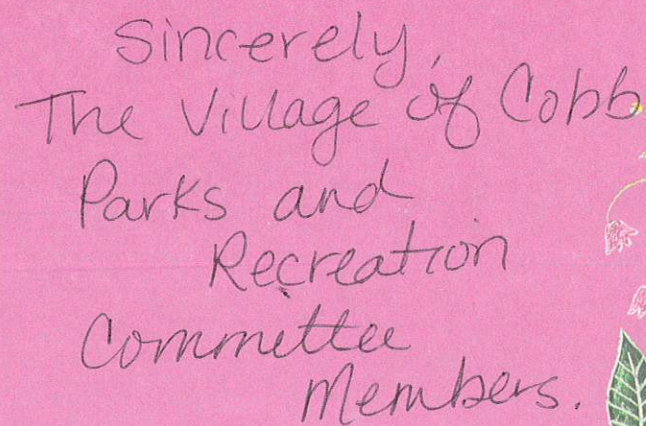 Sincerely,
The Village of Cobb
Parks and
Recreation
Committee
Members.